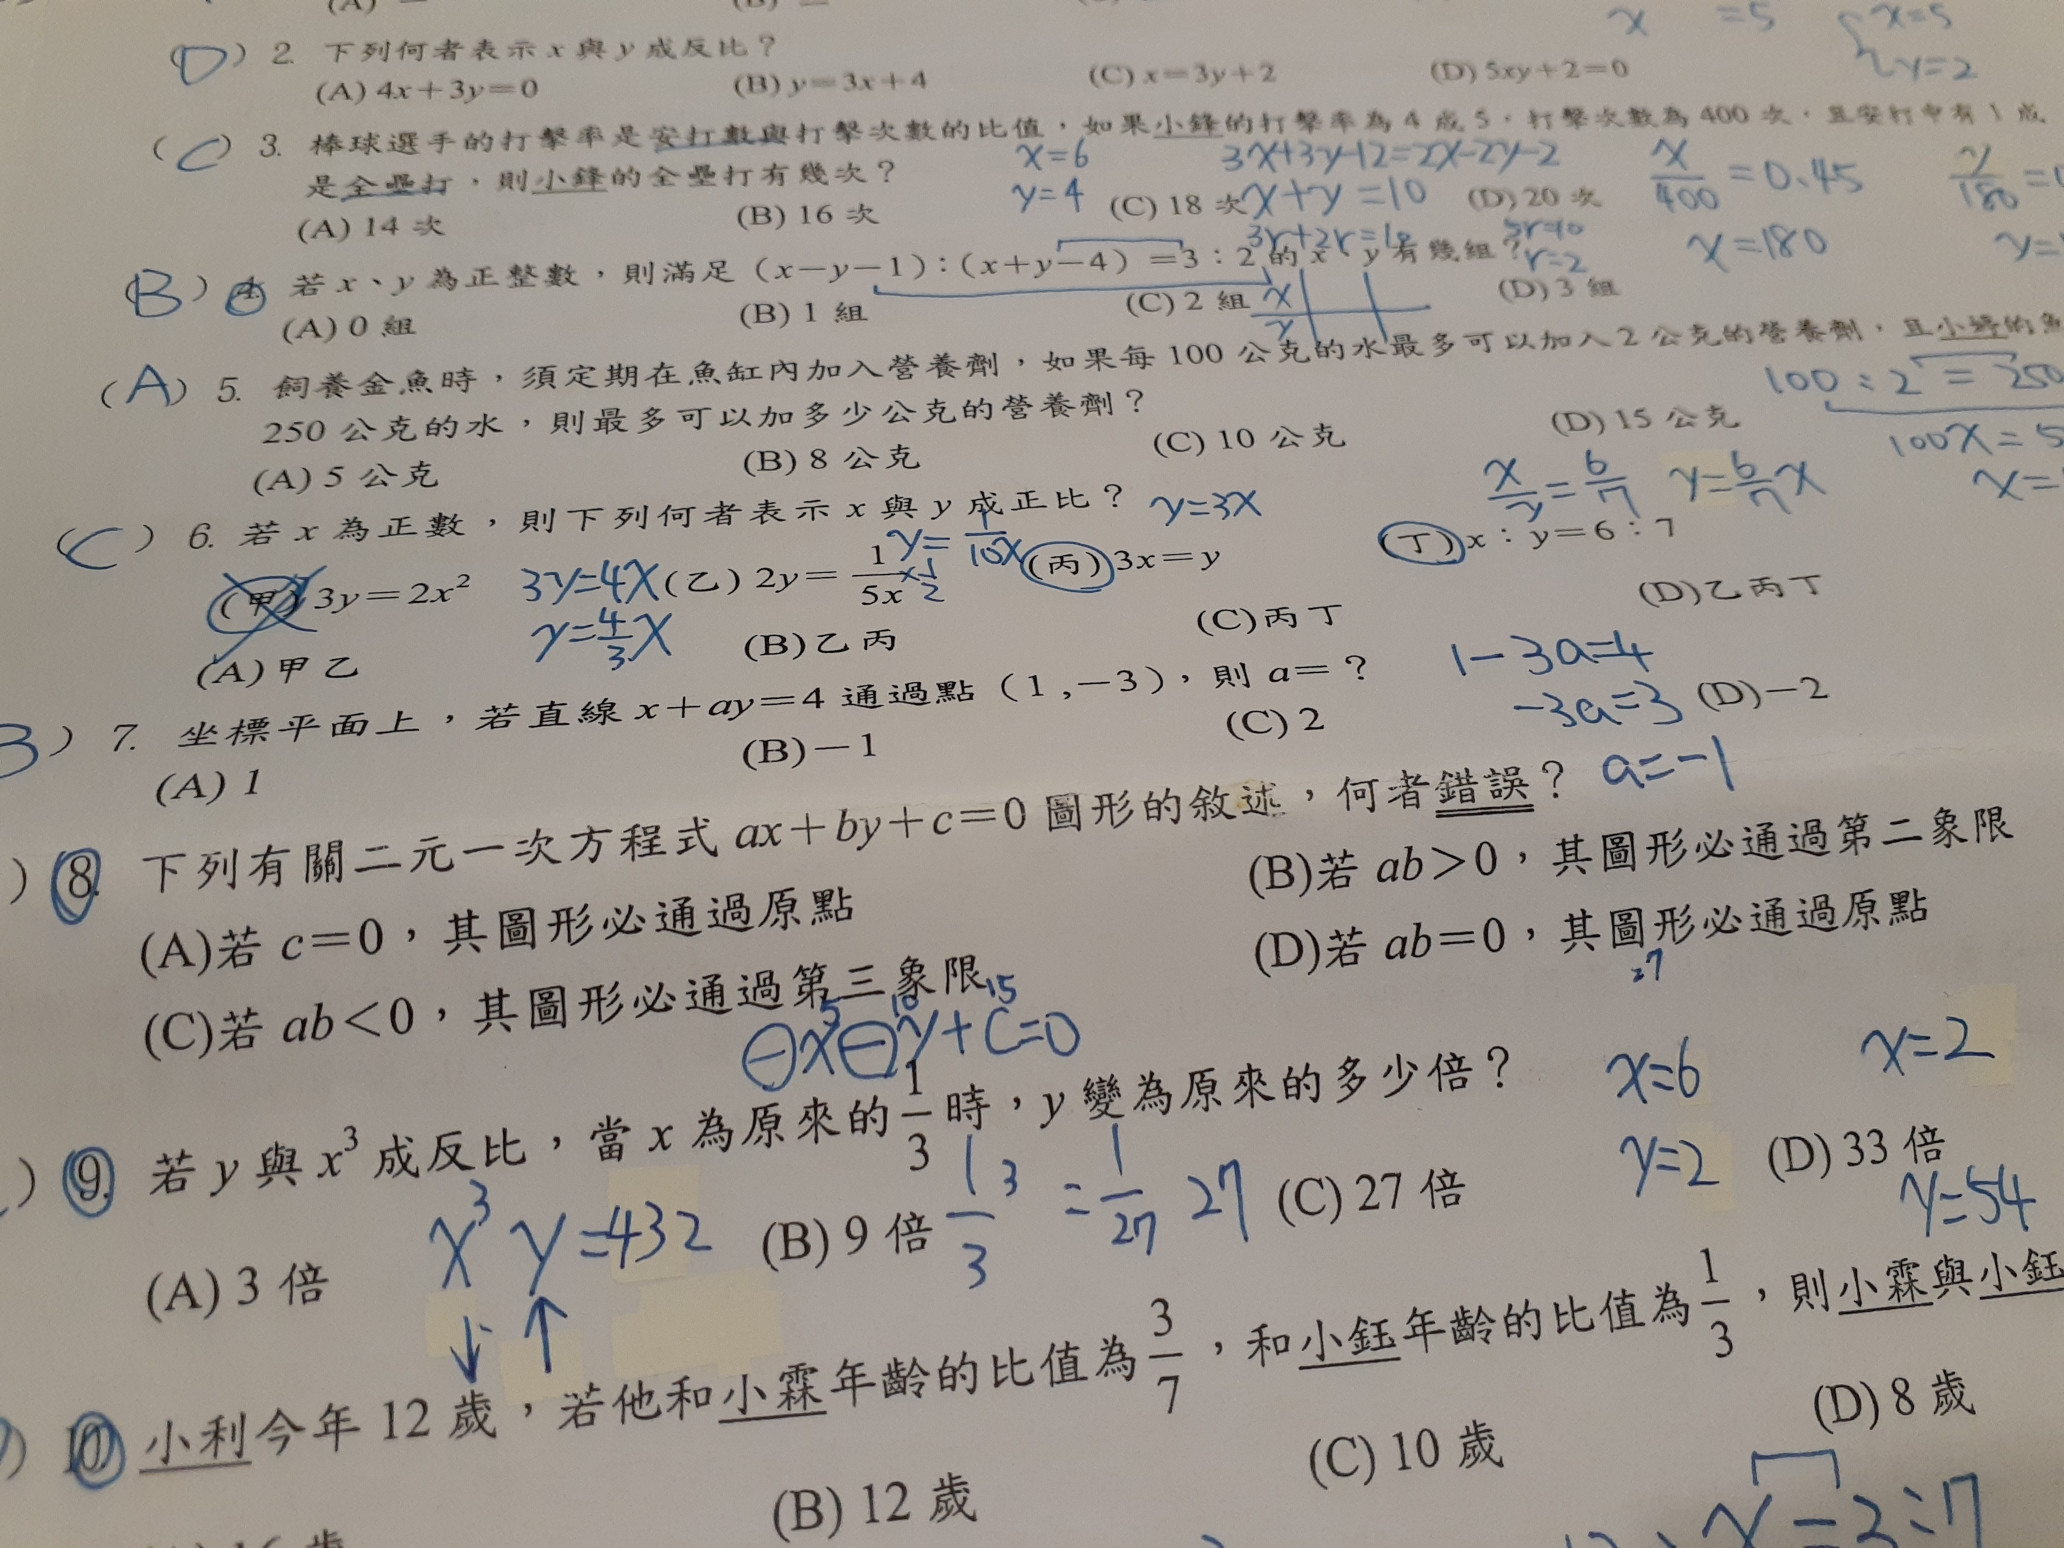 x =5 x=5
y=2
(D) 2. 下列何者表示 x 與 y 成反比？
(A) 4x+3y=0 (B) y=3x+4 (C) x=3y+2 (D) 5xy+2=0
(C) 3. 棒球選手的打擊率是安打數與打擊次數的比值，如果小鋒的打擊率為 4 成 5，打擊次數為 400 次，且安打中有 1 成
是全壘打，則小鋒的全壘打有幾次？
x=6 3x+3y-12=2x-2y-2 x/400 =0.45 y/180 =
y=4 x+y=10
(A) 14 次 (B) 16 次 (C) 18 次 (D) 20 次
3r+2r=10 5r=10 x=180 y=
r=2
(B) 4. 若 x、y 為正整數，則滿足（x－y－1）：（x＋y－4）＝3：2 的 x、y 有幾組？
(A) 0 組 (B) 1 組 (C) 2 組 (D) 3 組
x
y
(A) 5. 飼養金魚時，須定期在魚缸內加入營養劑，如果每 100 公克的水最多可以加入 2 公克的營養劑，且小婷的魚
250 公克的水，則最多可以加多少公克的營養劑？
100：2=250
100x=5
x=
(A) 5 公克 (B) 8 公克 (C) 10 公克 (D) 15 公克
(C) 6. 若 x 為正數，則下列何者表示 x 與 y 成正比？ y=3x x/y=6/7 y=6/7x
(甲) 3y=2x² 3y=4x (乙) 2y=1/5x ×1/2 y=1/10x (丙) 3x=y (丁) x：y=6：7
y=4/3x
(A) 甲乙 (B) 乙丙 (C) 丙丁 (D) 乙丙丁
B) 7. 坐標平面上，若直線 x+ay=4 通過點（1,－3），則 a=？ 1-3a=4
-3a=3
a=-1
(A) 1 (B)－1 (C) 2 (D)－2
) 8. 下列有關二元一次方程式 ax+by+c=0 圖形的敘述，何者錯誤？
(A)若 c=0，其圖形必通過原點 (B)若 ab>0，其圖形必通過第二象限
(C)若 ab<0，其圖形必通過第三象限 (D)若 ab=0，其圖形必通過原點
5 10 15 =7
-x-y+c=0
) 9. 若 y 與 x³ 成反比，當 x 為原來的 1/3 時，y 變為原來的多少倍？ x=6 x=2
y=2 y=54
x³y=432 1/3³ =1/27 27
↓ ↑
(A) 3 倍 (B) 9 倍 (C) 27 倍 (D) 33 倍
) 10. 小利今年 12 歲，若他和小霖年齡的比值為 3/7，和小鈺年齡的比值為 1/3，則小霖與小鈺
(B) 12 歲 (C) 10 歲 (D) 8 歲